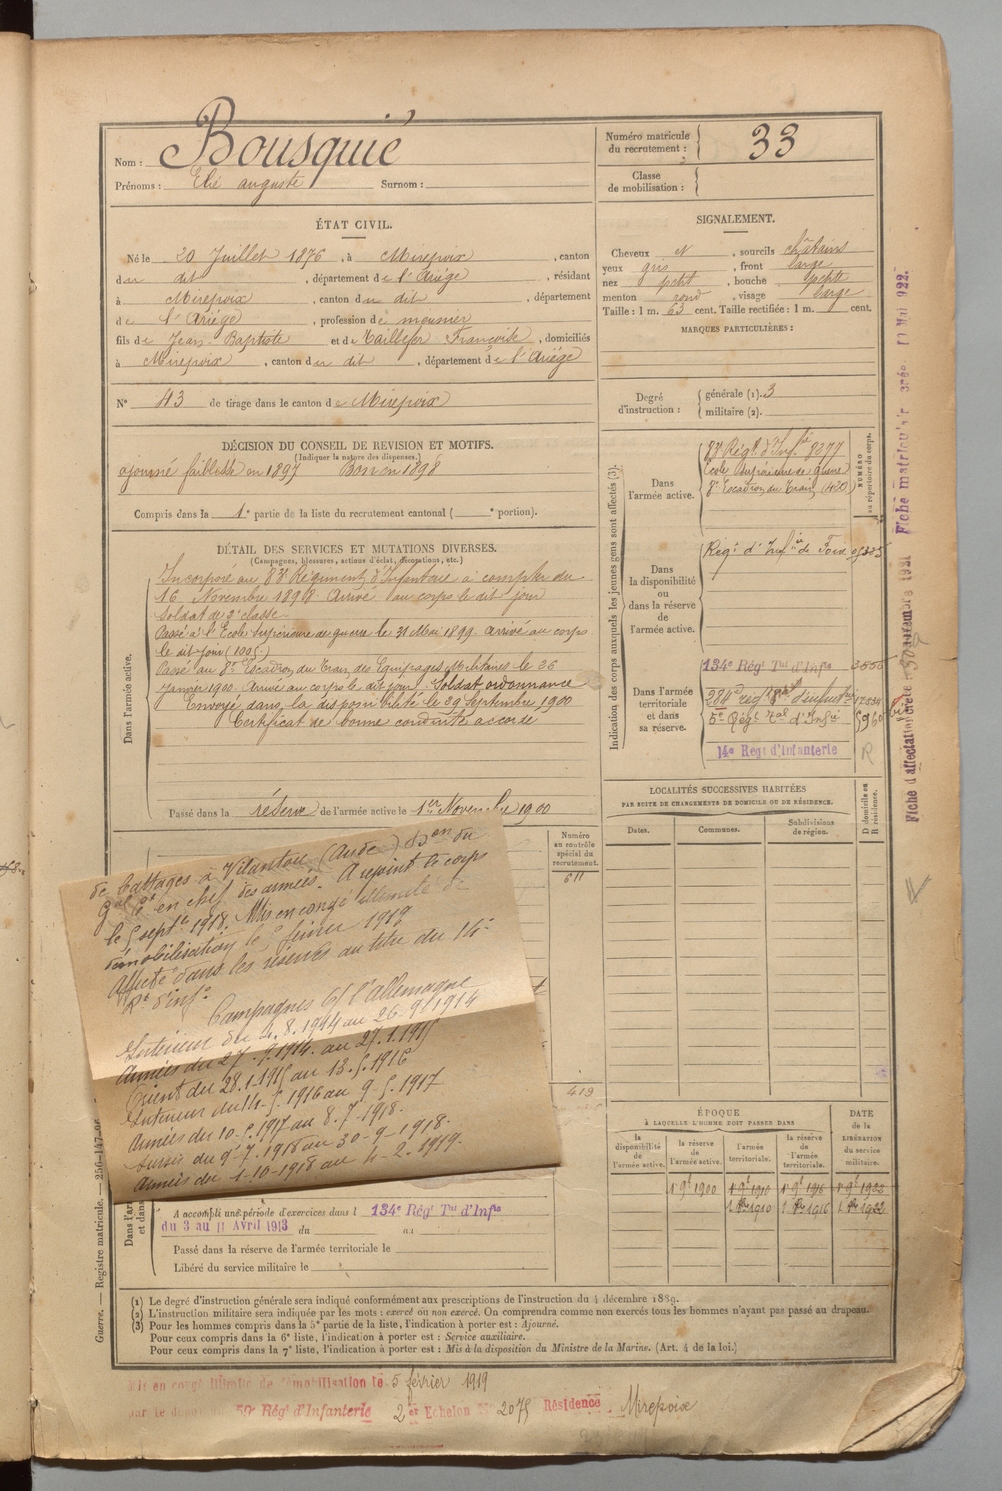 Nom : Bousquié
Prénoms : Elie auguste Surnom :
Numéro matricule du recrutement : 33
Classe de mobilisation :
ÉTAT CIVIL.
Né le 20 Juillet 1876, à Mirepoix, canton
du dit, département de l'Ariège, résidant
à Mirepoix, canton du dit, département
de l'Ariège, profession de meunier
fils de Jean Baptiste et de Taillefer Françoise, domiciliés
à Mirepoix, canton du dit, département de l'Ariège
N° 43 de tirage dans le canton de Mirepoix
SIGNALEMENT.
Cheveux et, sourcils châtains
yeux gris, front large
nez petit, bouche petite
menton rond, visage large
Taille : 1 m. 63 cent. Taille rectifiée : 1 m. cent.
MARQUES PARTICULIÈRES :
Degré d'instruction : générale (1). 3
militaire (2).
DÉCISION DU CONSEIL DE REVISION ET MOTIFS.
(Indiquer la nature des dispenses.)
ajourné faiblesse en 1897 Bon en 1898
Compris dans la 1e partie de la liste du recrutement cantonal ( e portion).
DÉTAIL DES SERVICES ET MUTATIONS DIVERSES.
(Campagnes, blessures, actions d'éclat, décorations, etc.)
Dans l'armée active.
Incorporé au 83e Régiment d'Infanterie à compter du
16 Novembre 1898. Arrivé au corps le dit jour
Soldat de 2e classe
Passé à l'Ecole Supérieure de guerre le 31 Mai 1899. Arrivé au corps
le dit jour (1005)
Passé au 8e Escadron du Train des Equipages Militaires le 26
Janvier 1900. Arrivé au corps le dit jour. Soldat ordonnance
Envoyé dans la disponibilité le 29 Septembre 1900
Certificat de bonne conduite accordé
Passé dans la réserve de l'armée active le 1er Novembre 1900
Indication des corps auxquels les jeunes gens sont affectés (3).
NUMÉRO au répertoire du corps.
Dans l'armée active.
83e Régt d'Infie 8277
Ecole Supérieure de guerre
8e Escadron du Train (420)
Dans la disponibilité ou dans la réserve de l'armée active.
Régt d'Infie de Foix
Dans l'armée territoriale et dans sa réserve.
134e Régt Tal d'Infie
5e Régt Tal d'Infie 5960
14e Régt d'Infanterie R
LOCALITÉS SUCCESSIVES HABITÉES
PAR SUITE DE CHANGEMENTS DE DOMICILE OU DE RÉSIDENCE.
Dates. Communes. Subdivisions de région. D domicile ou R résidence.
Numéro au contrôle spécial du recrutement.
611
419
de Battages à Villautou (Aude) don du
Gal Ct en chef des armées. A rejoint le corps
le 5 septe 1918. Mis en congé illimité de
démobilisation le 5 février 1919
Affecté dans les réserves au titre du 14e
Rt d'infie
Campagnes Ct l'Allemagne
Intérieur du 4.8.1914 au 26.9.1914
Armées du 27.9.1914 au 27.1.1915
Orient du 28.1.1915 au 13.5.1916
Intérieur du 14.5.1916 au 9.5.1917
Armées du 10.5.1917 au 8.7.1918.
Sursis du 9.7.1918 au 30-9-1918.
Armées du 1-10-1918 au 4-2-1919.
A accompli une période d'exercices dans l 134e Régt Tal d'Infie
du 3 au 11 Avril 1913 du au
Passé dans la réserve de l'armée territoriale le
Libéré du service militaire le
ÉPOQUE
À LAQUELLE L'HOMME DOIT PASSER DANS
la disponibilité de l'armée active. la réserve de l'armée active. l'armée territoriale. la réserve de l'armée territoriale.
DATE de la LIBÉRATION du service militaire.
1 9e 1900 1 9e 1910 1 9e 1916 1 9e 1922
1 8bre 1910 1 8bre 1916 1 8bre 1922
(1) Le degré d'instruction générale sera indiqué conformément aux prescriptions de l'instruction du 4 décembre 1889.
(2) L'instruction militaire sera indiquée par les mots : exercé ou non exercé. On comprendra comme non exercés tous les hommes n'ayant pas passé au drapeau.
(3) Pour les hommes compris dans la 5e partie de la liste, l'indication à porter est : Ajourné.
Pour ceux compris dans la 6e liste, l'indication à porter est : Service auxiliaire.
Pour ceux compris dans la 7e liste, l'indication à porter est : Mis à la disposition du Ministre de la Marine. (Art. 4 de la loi.)
Mis en congé illimité de démobilisation le 5 février 1919
par le dépôt du 59e Régt d'Infanterie 2er Echelon N° 2075 Résidence Mirepoix
Guerre. — Registre matricule. — 256-147-96.
Fiche matriculaire créée 10 Mai 922.